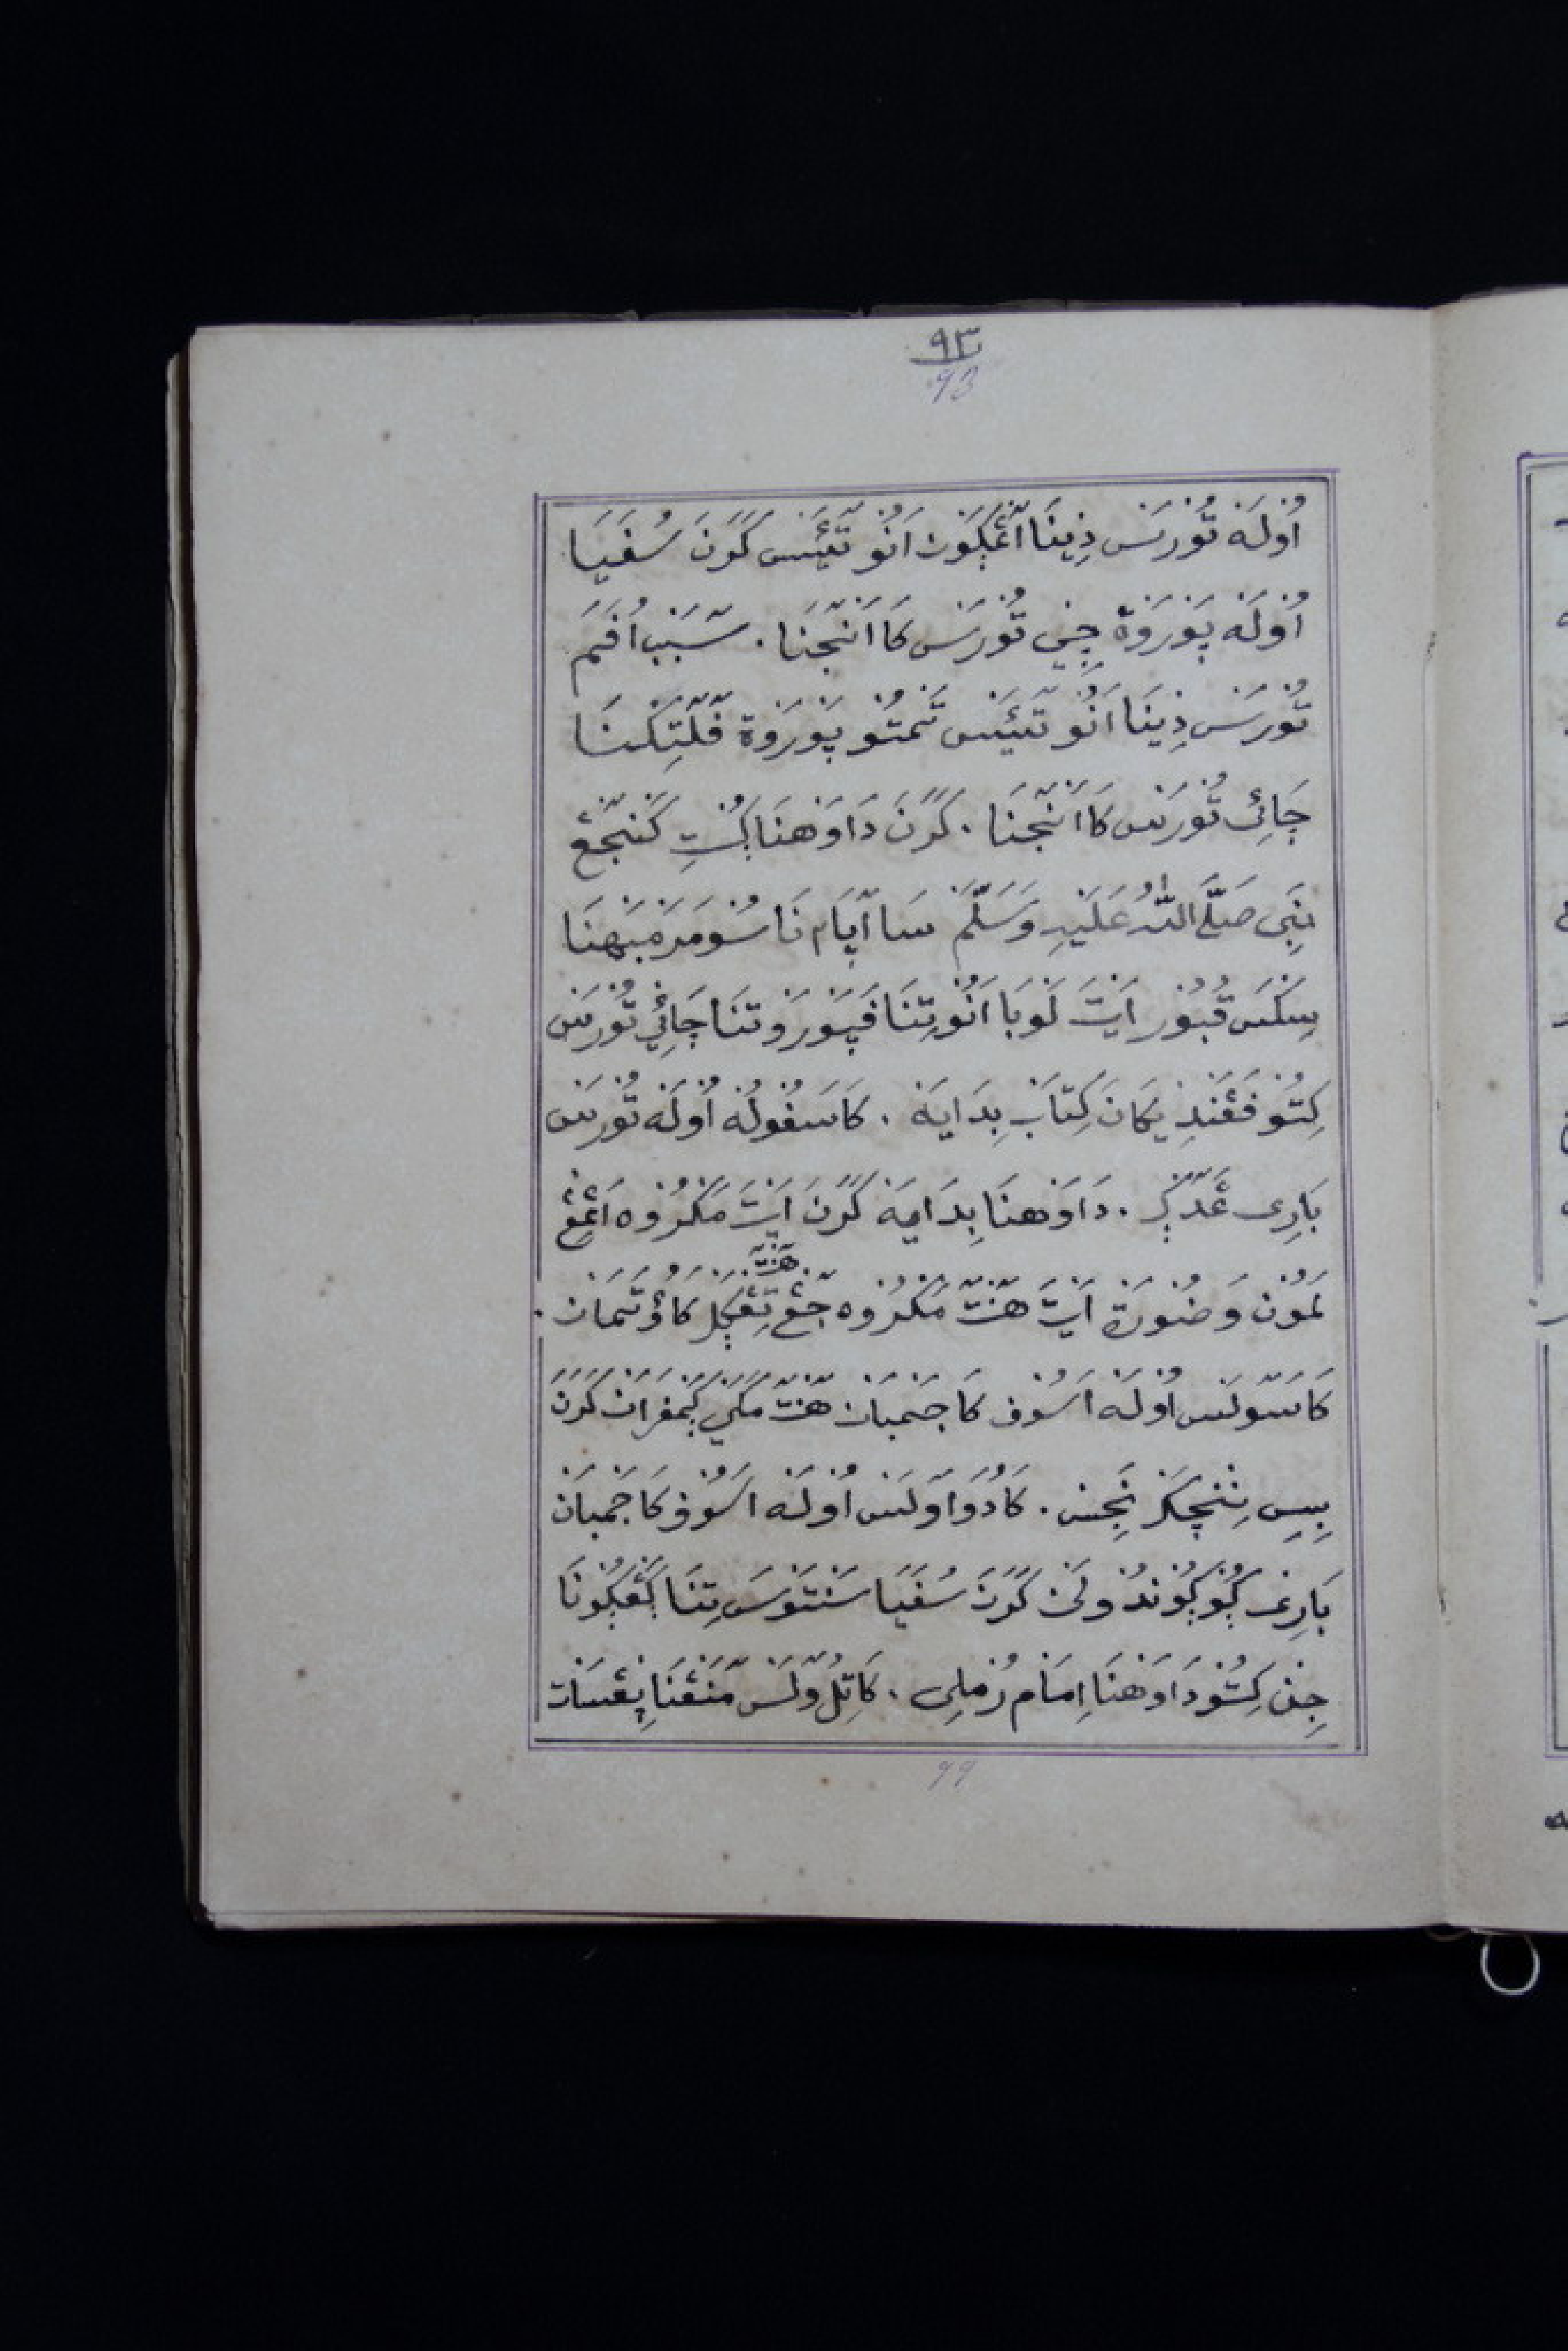 ٩٣
93
اُولَهْ تُورَسْ ذِينَا اَغْڮَوْنْ اَنُو تَيْئَسْ كَرَنَ سُفَيَا
اُولَهْ بَوْرَوَةْ جِنِي تُورَسْ كَا اَنْجَنَا . سَبَبْ اُفَمَ
تُورَسْ ذِينَا اَنُو تَيْئَسْ تَمَتُو بَوْرَوَة فَلَتِكْنَا
جَائِى تُورَسْ كَا اَنْجَنَا . كَرَنَ دَاوَهْنَا ڮُتِ كَنْجَعْ
نَبِى صَلَّى اللّٰهُ عَلَيْهِ وَسَلَّمَ سَا اَيَام نَا سُومَرَمْبَهْنَا
سِكَسَ قُبُورْ اَيْتَ لَوْبَا اَنُو تِنَا فَڽَوْرَوْتَنَا جَائِي تُورَسْ
كِتُو فَقَنْدِيكَانَ كِتَابْ بِدَايَهْ . كَاسَفُولُهْ اُولَهْ تُورَسْ
بَارِى عَدَّڮْ . دَاوَهْنَا بِدَايَهْ كَرَنَ اَيْتَ مَكْرُوهْ اَغِعْ
لَمُوْنْ وَضُورَةْ اَيْتَ هَنْتَ مَكْرُوه جَعْ تِغْڮَلْ كَاؤُتَمَانْ .
هَنْتَ
كَاسَوَلَسْ اُولَهْ اَسُوفْ كَا جَمْبَانْ هَنْتَ مَكِيْ ڮَمْفَرَانْ كَرَنَ
بِيسِ نِنْچَكَرْ نَجِسْ . كَادُوَاوَلَسْ اُولَهْ اَسُوفْ كَا جَمْبَانْ
بَارِعْ ڮُوڮُونْدُوْلَنْ كَرَنَ سُفَيَا سَنْتَوْسَ تِنَا ڮَغْڮُونَا
جِنْ كِتُو دَاوَهْنَا اِمَامْ رُمْلِى . كَاتِلُوَلَسْ مَنَغْنَا نِعْسَاتْ
99